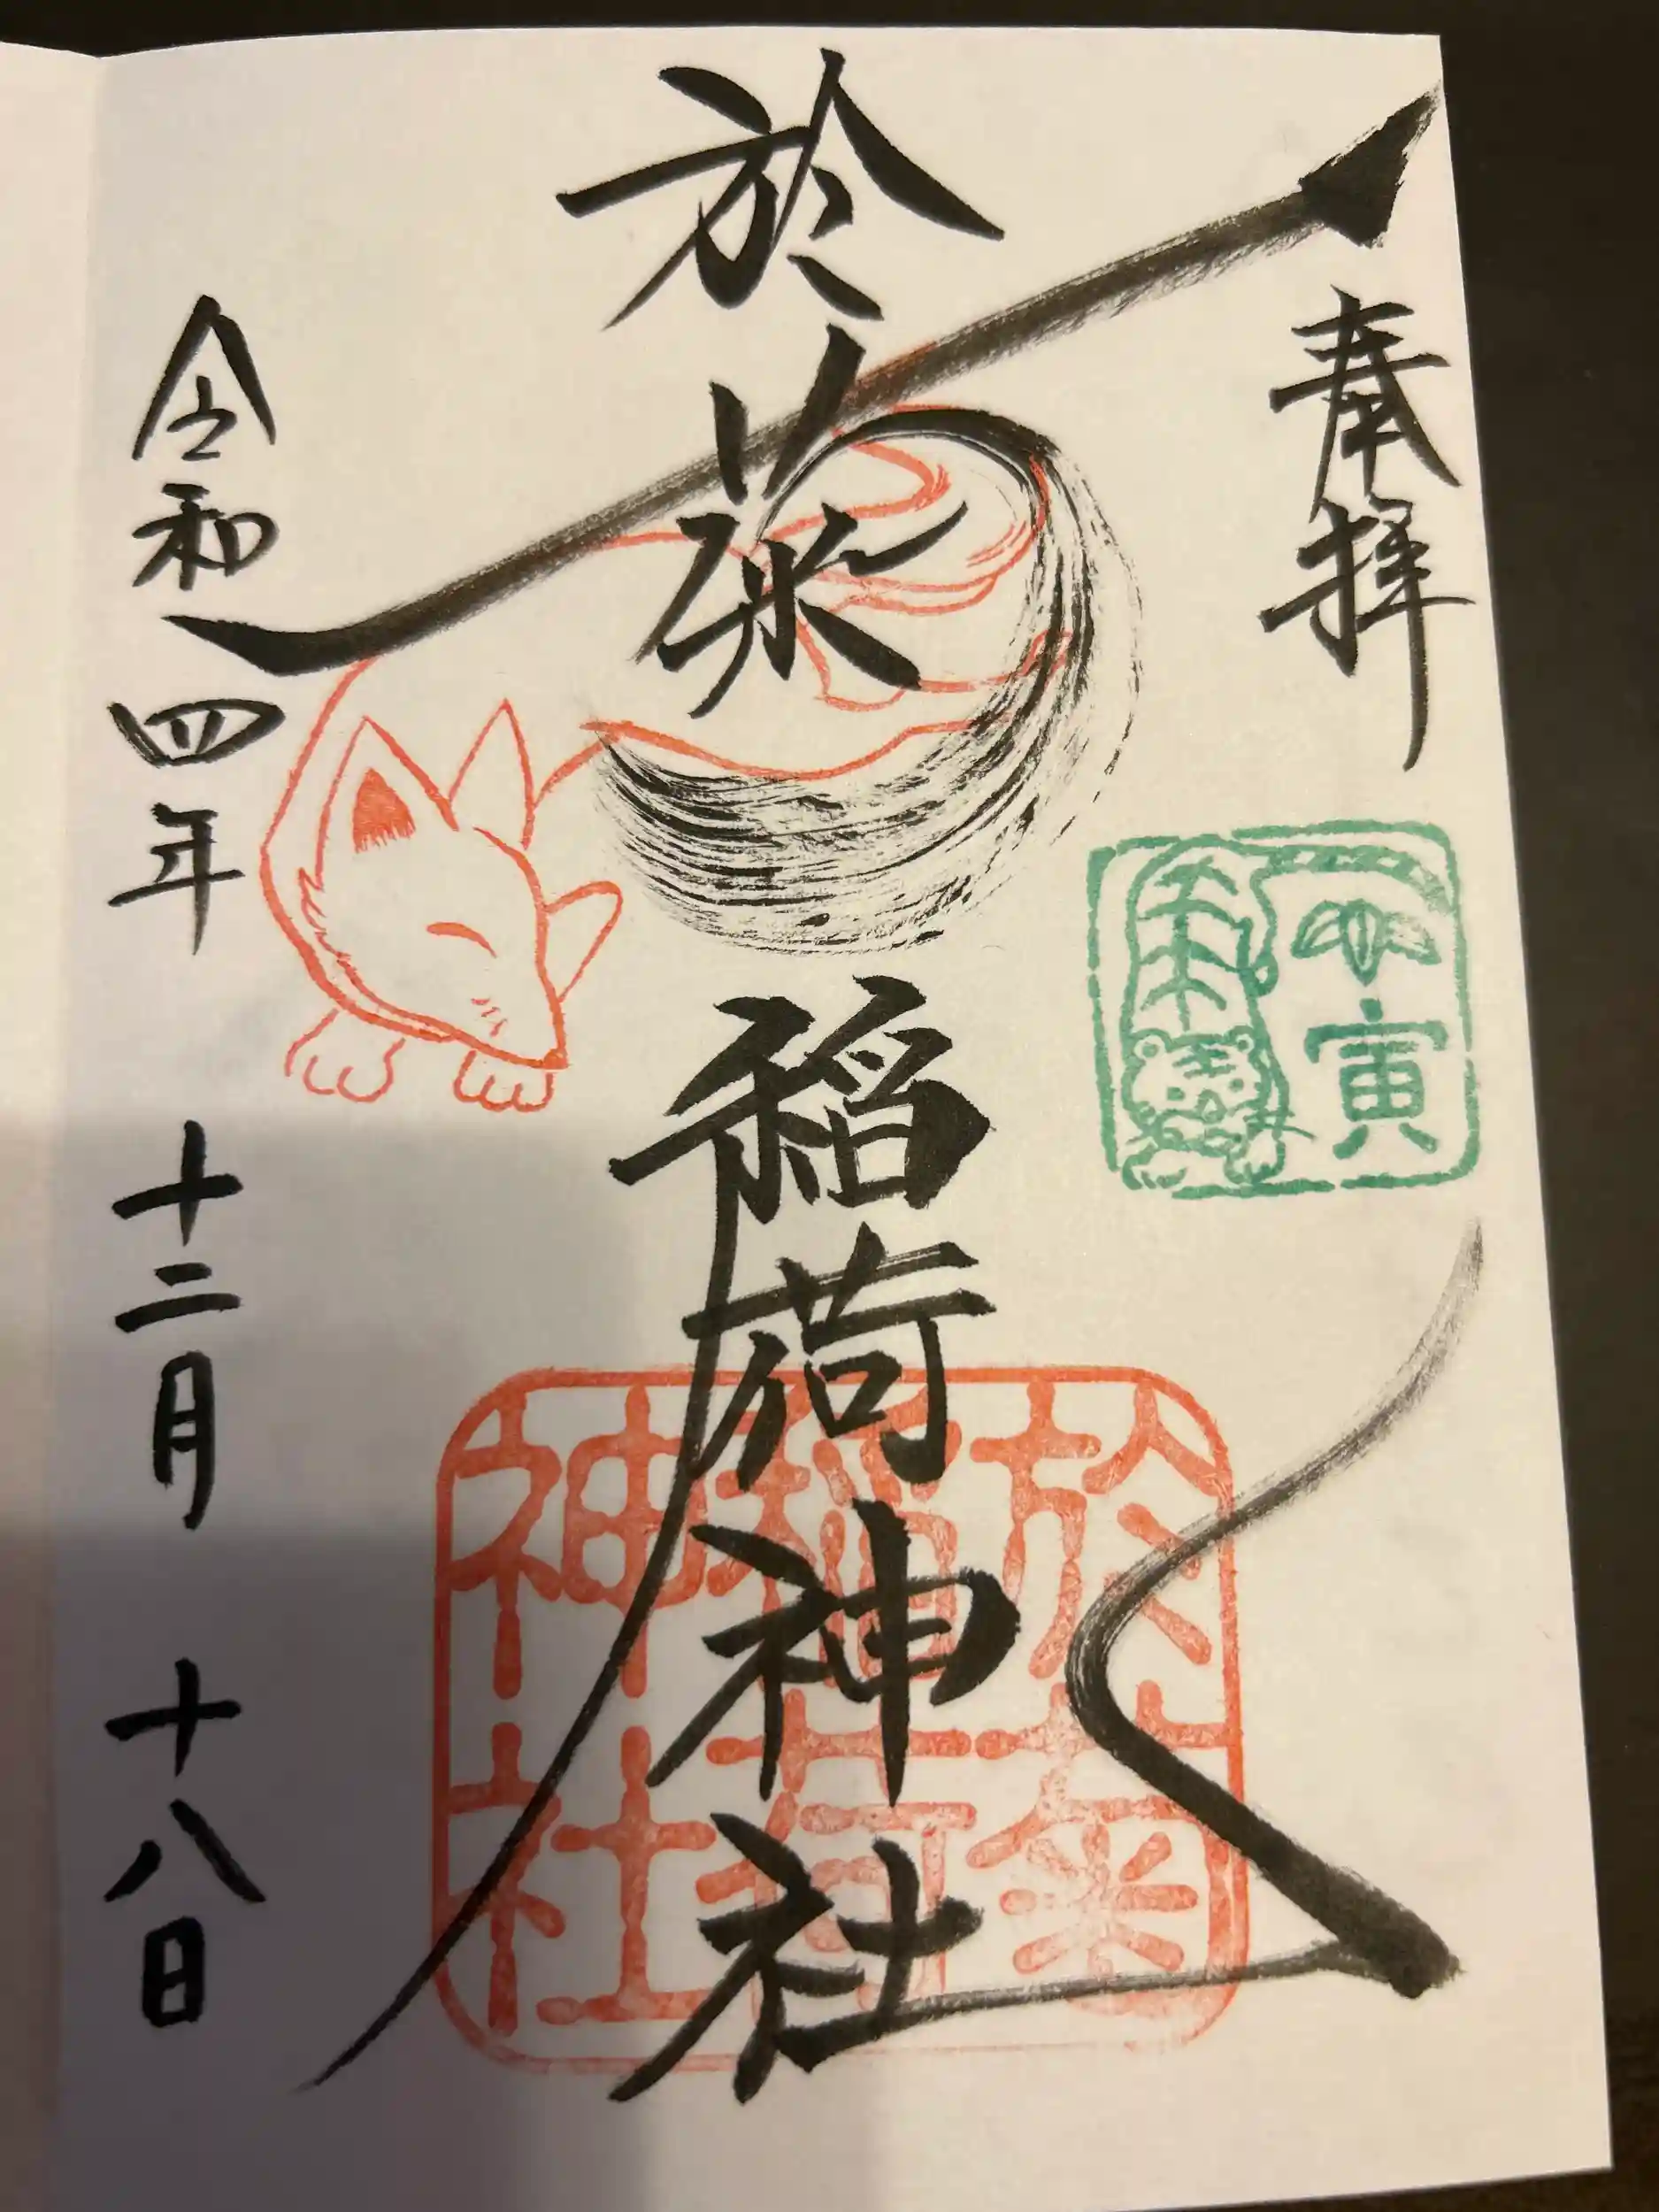 奉拝
寅
於菊稲荷神社
於菊稲荷神社
令和四年 十二月 十八日